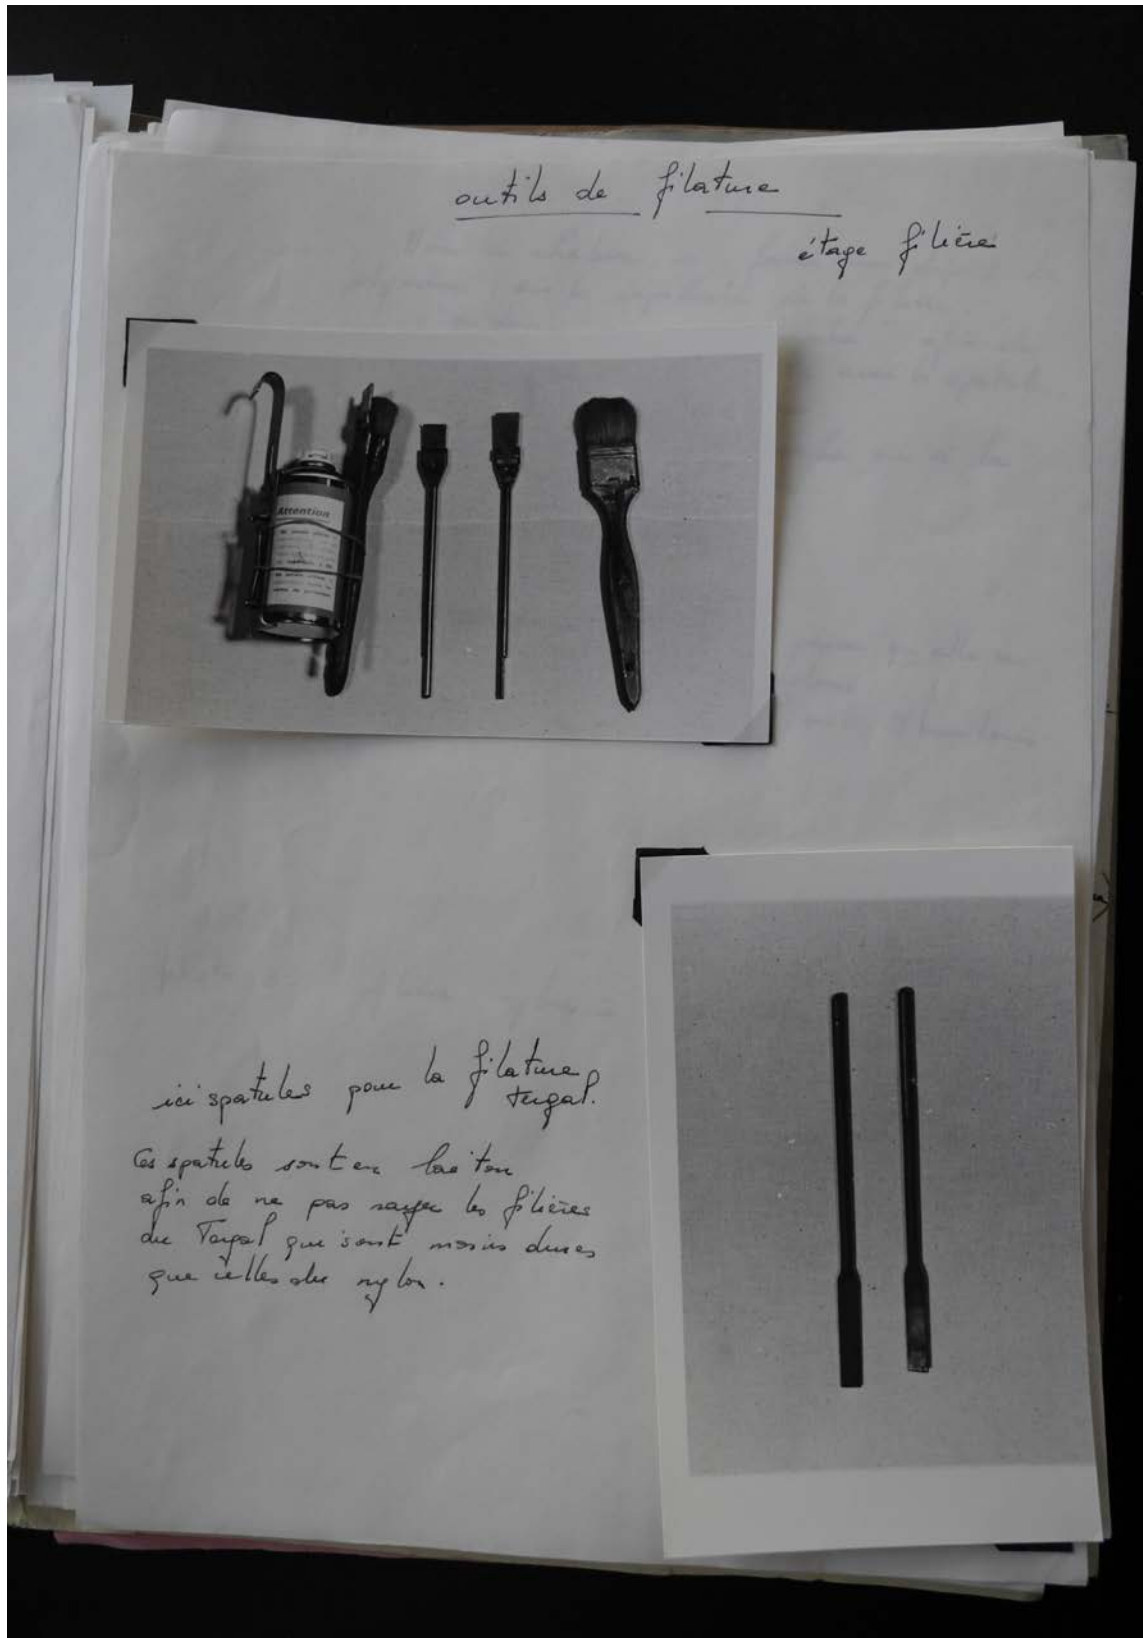 outils de filature
étage filière
Attention
ici spatules pour la filature
Tergal.
Ces spatules sont en laiton
afin de ne pas rayer les filières
du Tergal qui sont moins dures
que celles du nylon.